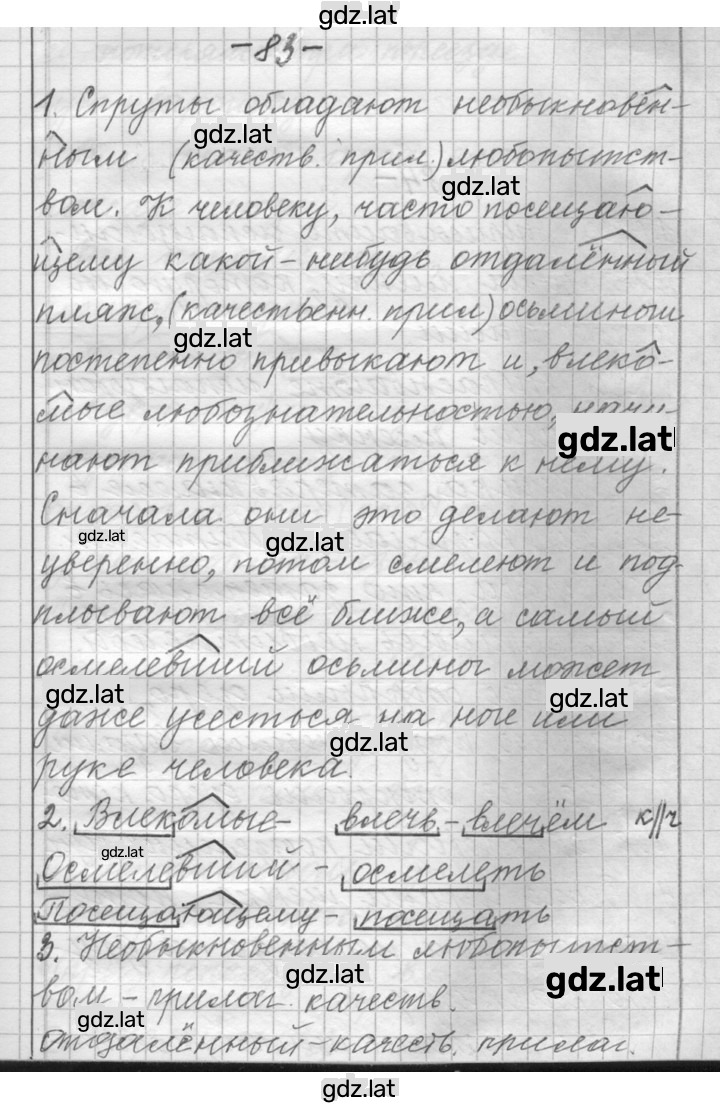 gdz.lat
-83-
1. Спруты обладают необыкновен-
gdz.lat
ным (качеств. прил.) любопытст-
gdz.lat
вом. К человеку, часто посещаю-
щему какой-нибудь отдалённый
пляж, (качественн. прил) осьминоги
gdz.lat
постепенно привыкают и, влеко-
мые любознательностью, начи-
gdz.lat
нают приближаться к нему.
Сначала они это делают не-
gdz.lat
gdz.lat
уверенно, потом смелеют и под-
плывают всё ближе, а самый
осмелевший осьминог может
gdz.lat
gdz.lat
даже усесться на ноге или
gdz.lat
руке человека.
2. Влекомые- влечь-влечём к//ч
gdz.lat
Осмелевший - осмелеть
Посещающему- посещать
3. Необыкновенным любопытст-
gdz.lat
gdz.lat
вом - прилаг. качеств.
gdz.lat
Отдалённый-качеств. прилаг.
gdz.lat